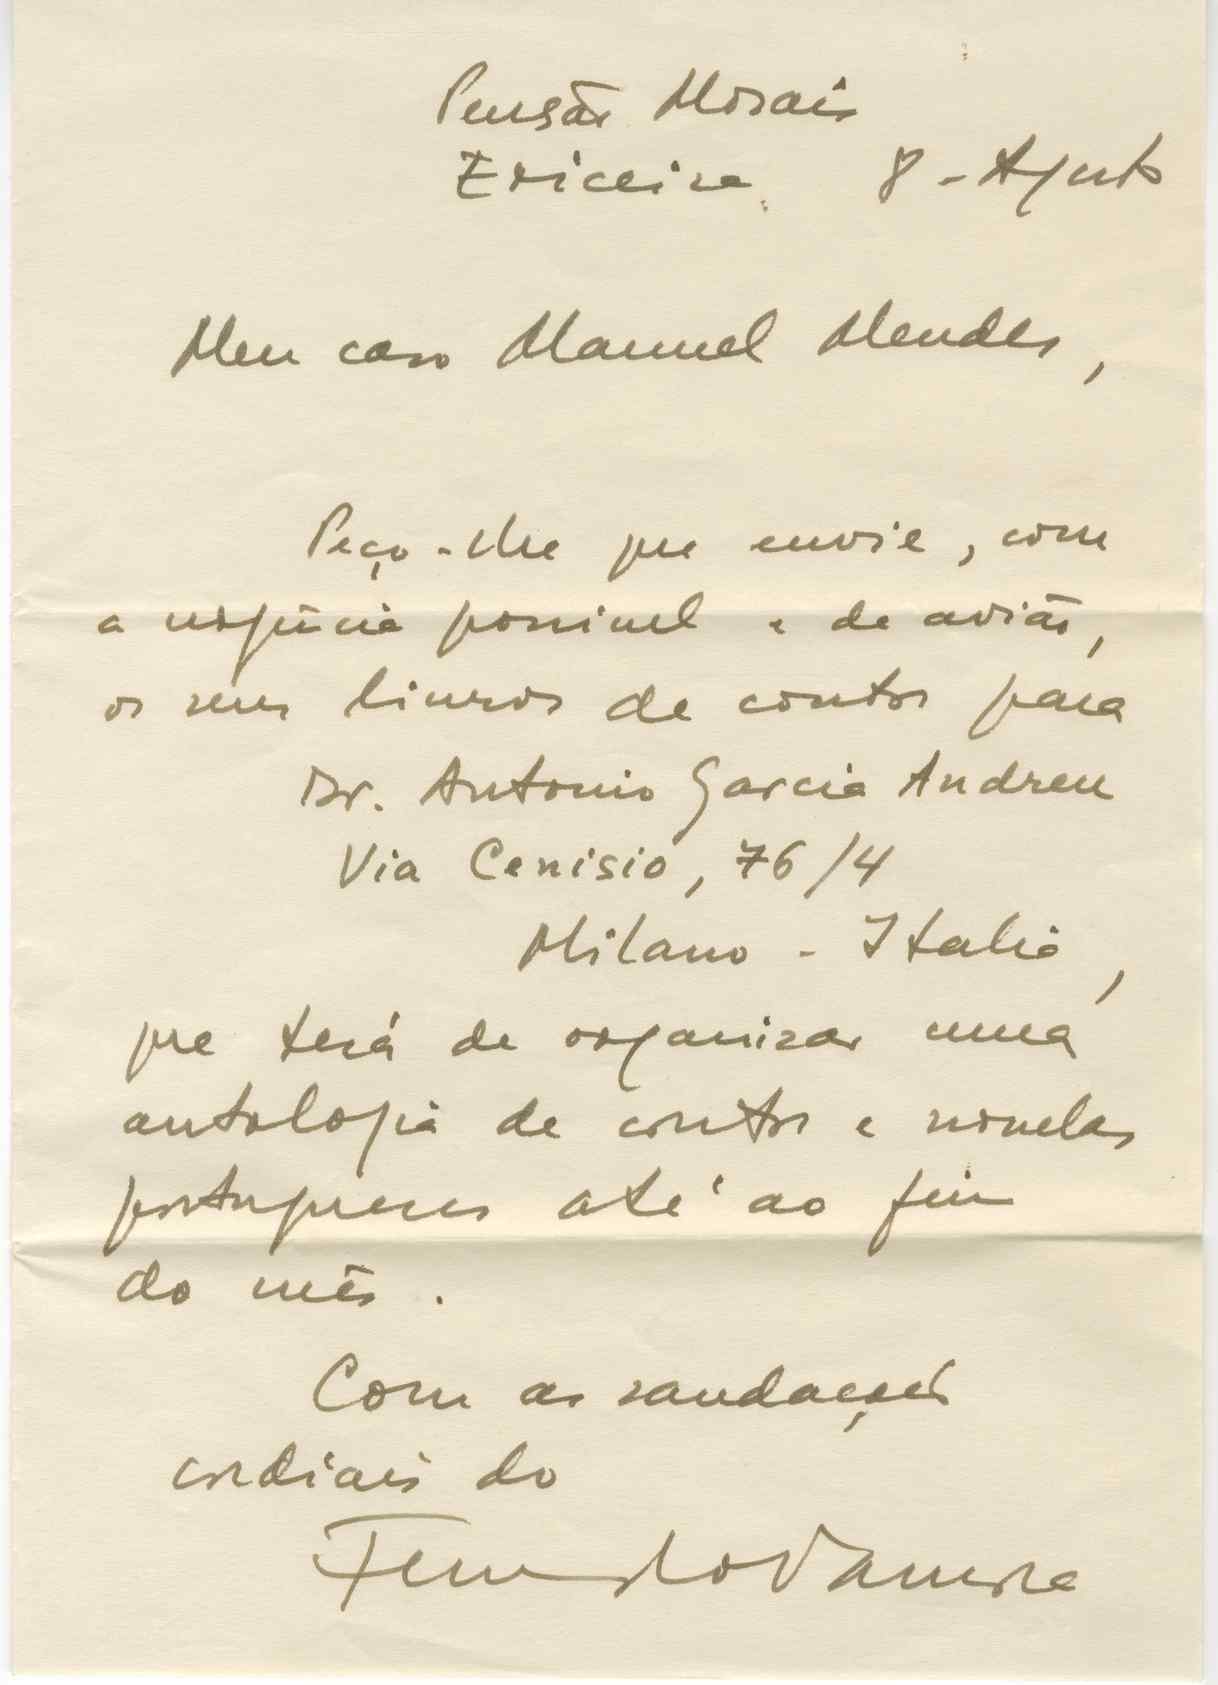 Pensão Morais
Ericeira 8 - Agosto
Meu caro Manuel Mendes,
Peço-lhe que envie, com
a urgência possivel e de avião,
os seus livros de contos para
Dr. Antonio Garcia Andreu
Via Cenisio, 76/4
Milano - Italia,
que terá de organizar uma
antologia de contos e novelas
portuguesas até ao fim
do mês.
Com as saudações
cordiais do
Fernando Namora